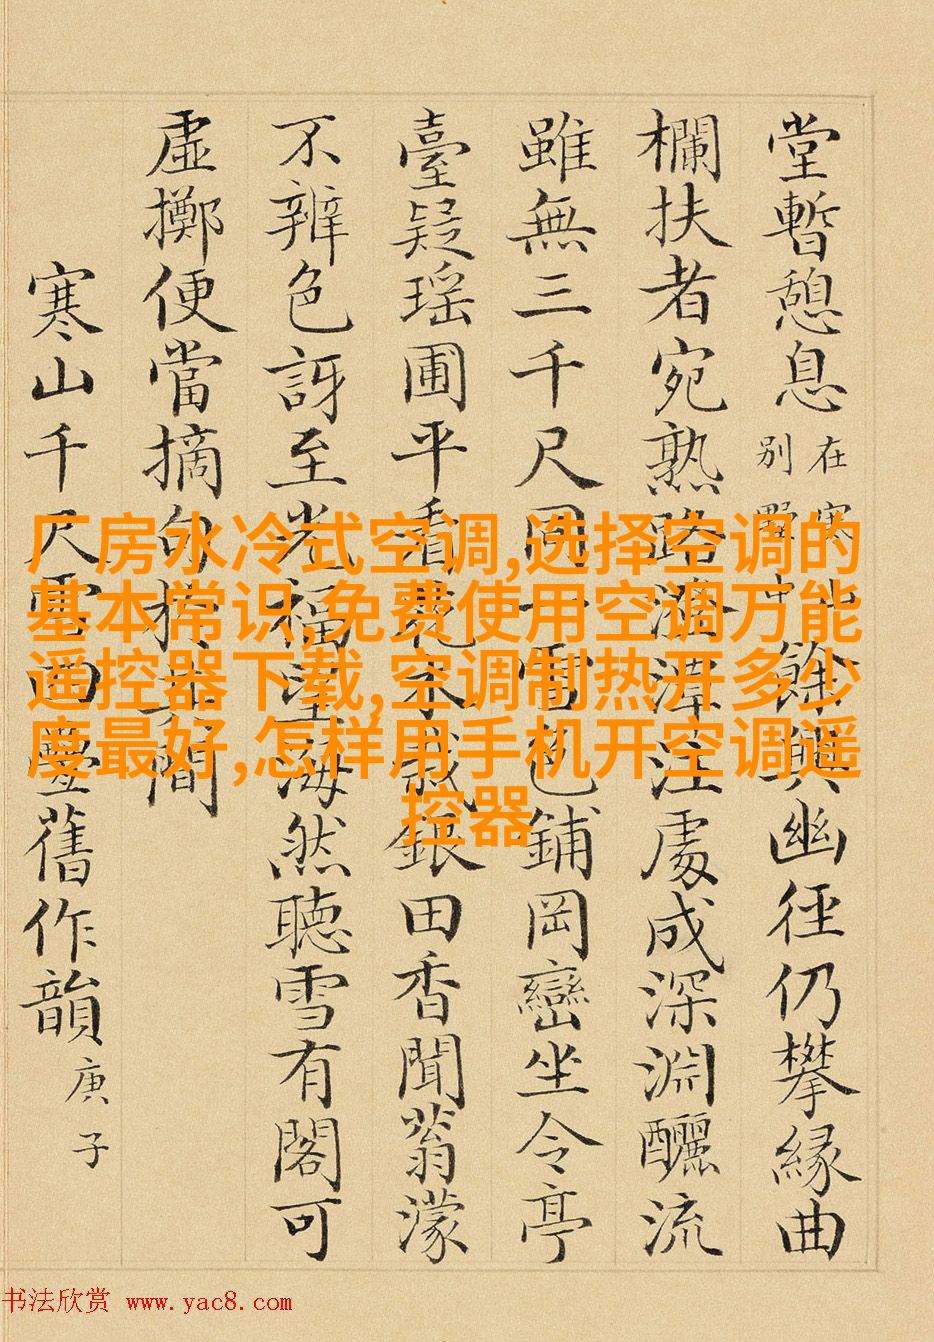 堂暫憩息在寒別墅餘興幽徑仍攀緣曲
欄扶者宛熟路潭注處成深淵釃流
雖無三千尺同一色鋪岡巒坐令亭
臺疑瑶圃平看銀田香聞蓊濛
不辨色訝至光福海然聽雪有閣可
虛擲便當摘句間
寒山千尺雪疊舊作韻庚子
厂房水冷式空调,选择空调的
基本常识,免费使用空调万能
遥控器下载,空调制热开多少
度最好,怎样用手机开空调遥
控器
书法欣赏 www.yac8.com